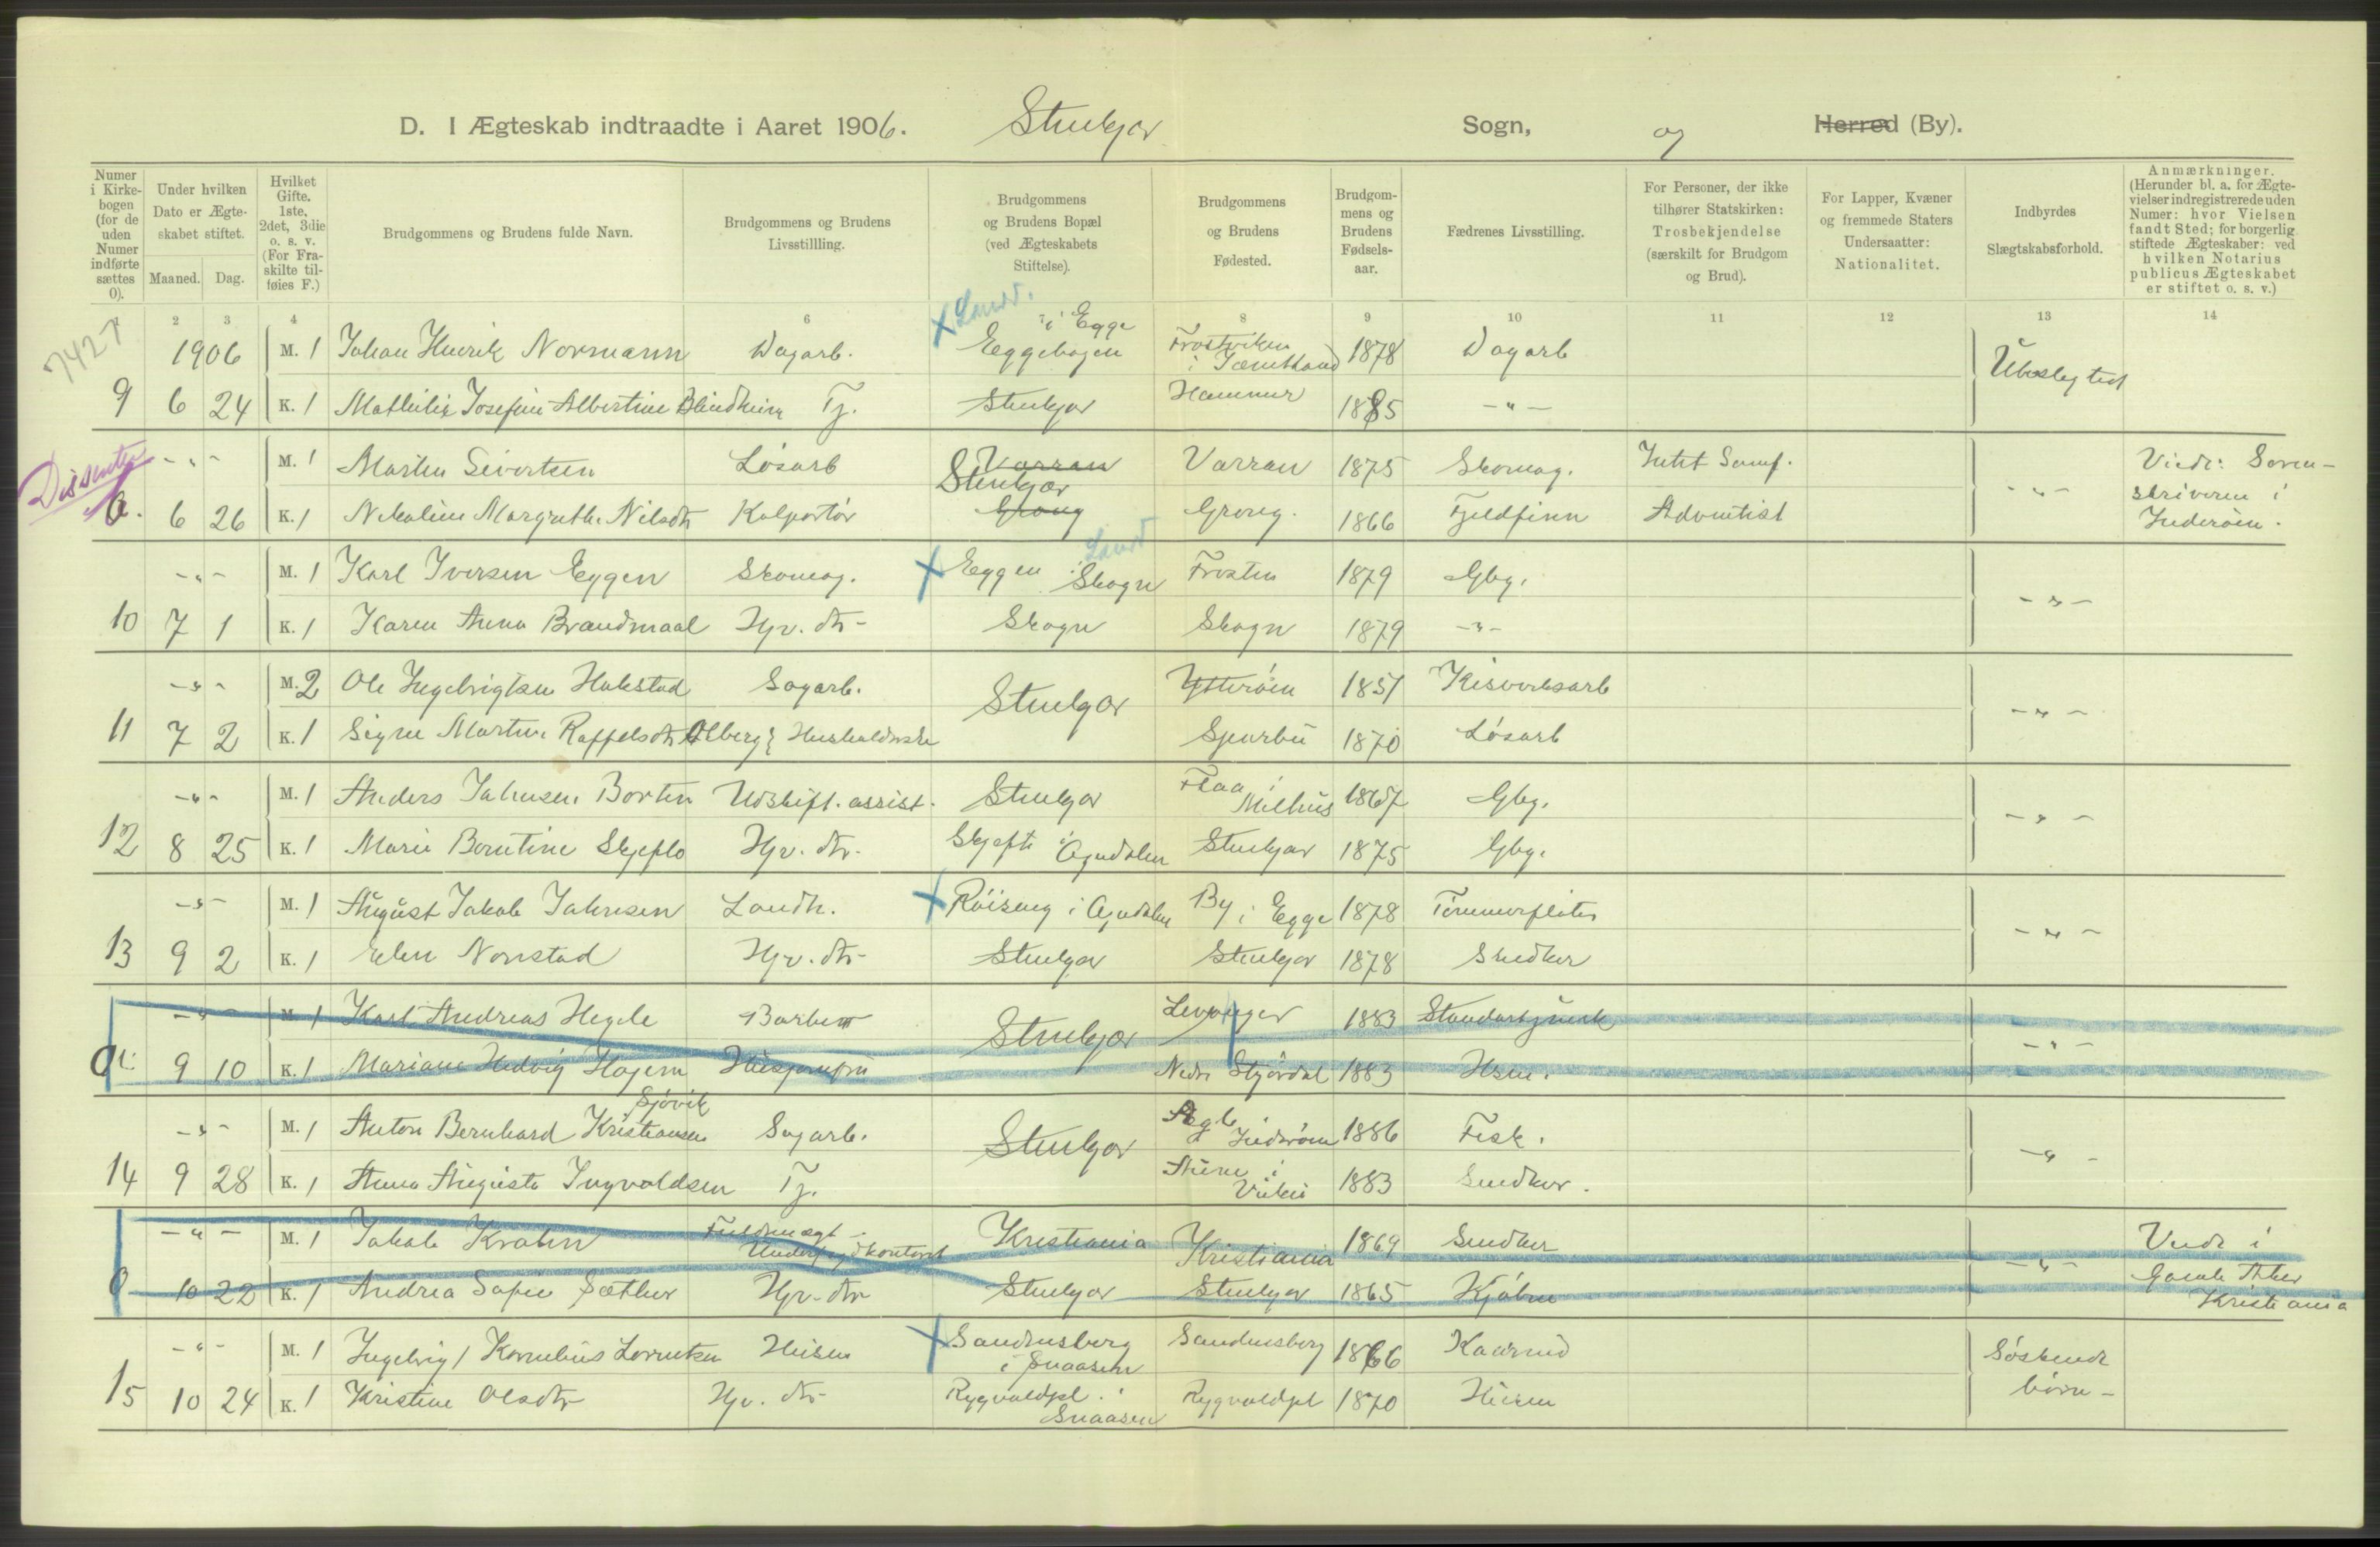 D. I Ægteskab indtraadte i Aaret 1906. Stenkjær Sogn, og Herred (By).
Numer i Kirkebogen (for de uden Numer indførte sættes 0).
Under hvilken Dato er Ægteskabet stiftet.
Maaned. Dag.
Hvilket Gifte. 1ste, 2det, 3die o. s. v. (For Fraskilte tilføies F.)
Brudgommens og Brudens fulde Navn.
Brudgommens og Brudens Livsstillling.
Brudgommens og Brudens Bopæl (ved Ægteskabets Stiftelse).
Brudgommens og Brudens Fødested.
Brudgommens og Brudens Fødselsaar.
Fædrenes Livsstilling.
For Personer, der ikke tilhører Statskirken: Trosbekjendelse (særskilt for Brudgom og Brud).
For Lapper, Kvæner og fremmede Staters Undersaatter: Nationalitet.
Indbyrdes Slægtskabsforhold.
Anmærkninger. (Herunder bl. a. for Ægtevielser indregistrerede uden Numer: hvor Vielsen fandt Sted; for borgerlig stiftede Ægteskaber: ved hvilken Notarius publicus Ægteskabet er stiftet o. s. v.)
2 3 4 6 8 9 10 11 12 13 14
7427
Landd.
1906 M. 1 Johan Henrik Normann Dagarb. Eggebogen i Egge Frostviken i Jæmtland 1878 Dagarb Ubeslegtet
9 6 24 K. 1 Mathilie Josefine Albertine Blindheim Tj. Stenkjær Hammer 1885 -"-
Dissenter
-"- M. 1 Morten Sivertsen Løsarb Varran Stenkjær Varran 1875 Skomag. Intet Samf. -"- Viede: Soren-
0. 6 26 K. 1 Nikoline Margrethe Nilsdtr Kolportør Grong Grong. 1866 Fjeldfinn Adventist skriveren i
Inderøen.
Landd
-"- M. 1 Karl Iversen Eggen Skomag. Eggen i Skogn Frosten 1879 Gbr. -"-
10 7 1 K. 1 Karen Anna Brandmaal Hjv. dtr- Skogn Skogn 1879 -"-
-"- M. 2 Ole Ingebrigtsen Hakstad Sagarb. Stenkjær Ytterøen 1851 Kisverksarb -"-
11 7 2 K. 1 Signe Martine Raffelsdtr Olberg Husholderske Sparbu 1870 Løsarb
-"- M. 1 Anders Johnsen Borten Udskift. assist. Stenkjær Flaa i Melhus 1867 Gbr. -"-
12 8 25 K. 1 Marie Berntine Skjeflo Hjv. dtr. Skjefte i Ogndalen Stenkjær 1875 Gbr.
-"- M. 1 August Jakob Johnsen Landh. Røiseng i Ogndalen By i Egge 1878 Tømmerfløter -"-
13 9 2 K. 1 Elen Norstad Hjv. dtr- Stenkjær Stenkjær 1878 Snedker
-"- M. 1 Karl Andreas Hegle Barber Stenkjær Levanger 1883 Standartjunk -"-
0. 9 10 K. 1 Mariane Hedvig Hojem Husjomfru Nedre Stjørdal 1883 Hsm.
Sjøvik
-"- M. 1 Anton Bernhard Kristiansen Sagarb. Stenkjær Inderøen 1886 Fisk. -"-
14 9 28 K. 1 Anna Augusta Ingvaldsen Tj. Aune i 1883 Snedker.
-"- M. 1 Jakob Krohn Fuldmægt. Kristiania Kristiania 1869 Snedker -"- Viede i
0 10 22 K. 1 Andrea Sofie Sæther Hjv. dtr Stenkjær Stenkjær 1865 Kjøbm Gamle Aker
Kristiania
-"- M. 1 Ingebrigt Kornelius Lorentsen Husm Sandnesberg i Snaasen Sandnesberg 1866 Kaarmd Søskende
15 10 24 K. 1 Kristine Olsdtr Hjv. dtr- Rygvoldpl. i Snaasen Rygvoldpl 1870 Husm børn-